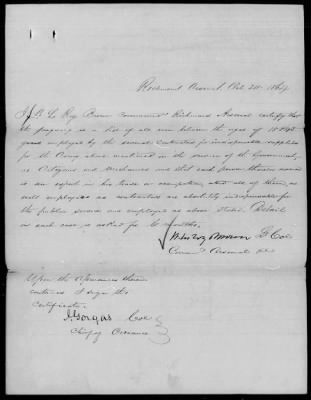 Richmond Arsenal, Oct. 20th 1864
I, W. Le Roy Broun Commanding Richmond Arsenal certify that
the foregoing is a list of all men between the ages of 18 & 45
years employed by the several contractors for indispensable supplies
for the Army above mentioned in the service of the Government,
as Artizans and Mechanics and that each person therein named
is an expert in his trade or occupation, and all of them, as
well employees as contractors are absolutely indispensable for
the public service and employed as above stated. Detail
in each case is asked for 6 months.
W. Le Roy Broun Lt Col
Comm Arsenal
Upon the assurances therein
contained I sign this
certificate.
J. Gorgas Col
Chf of Ordnance